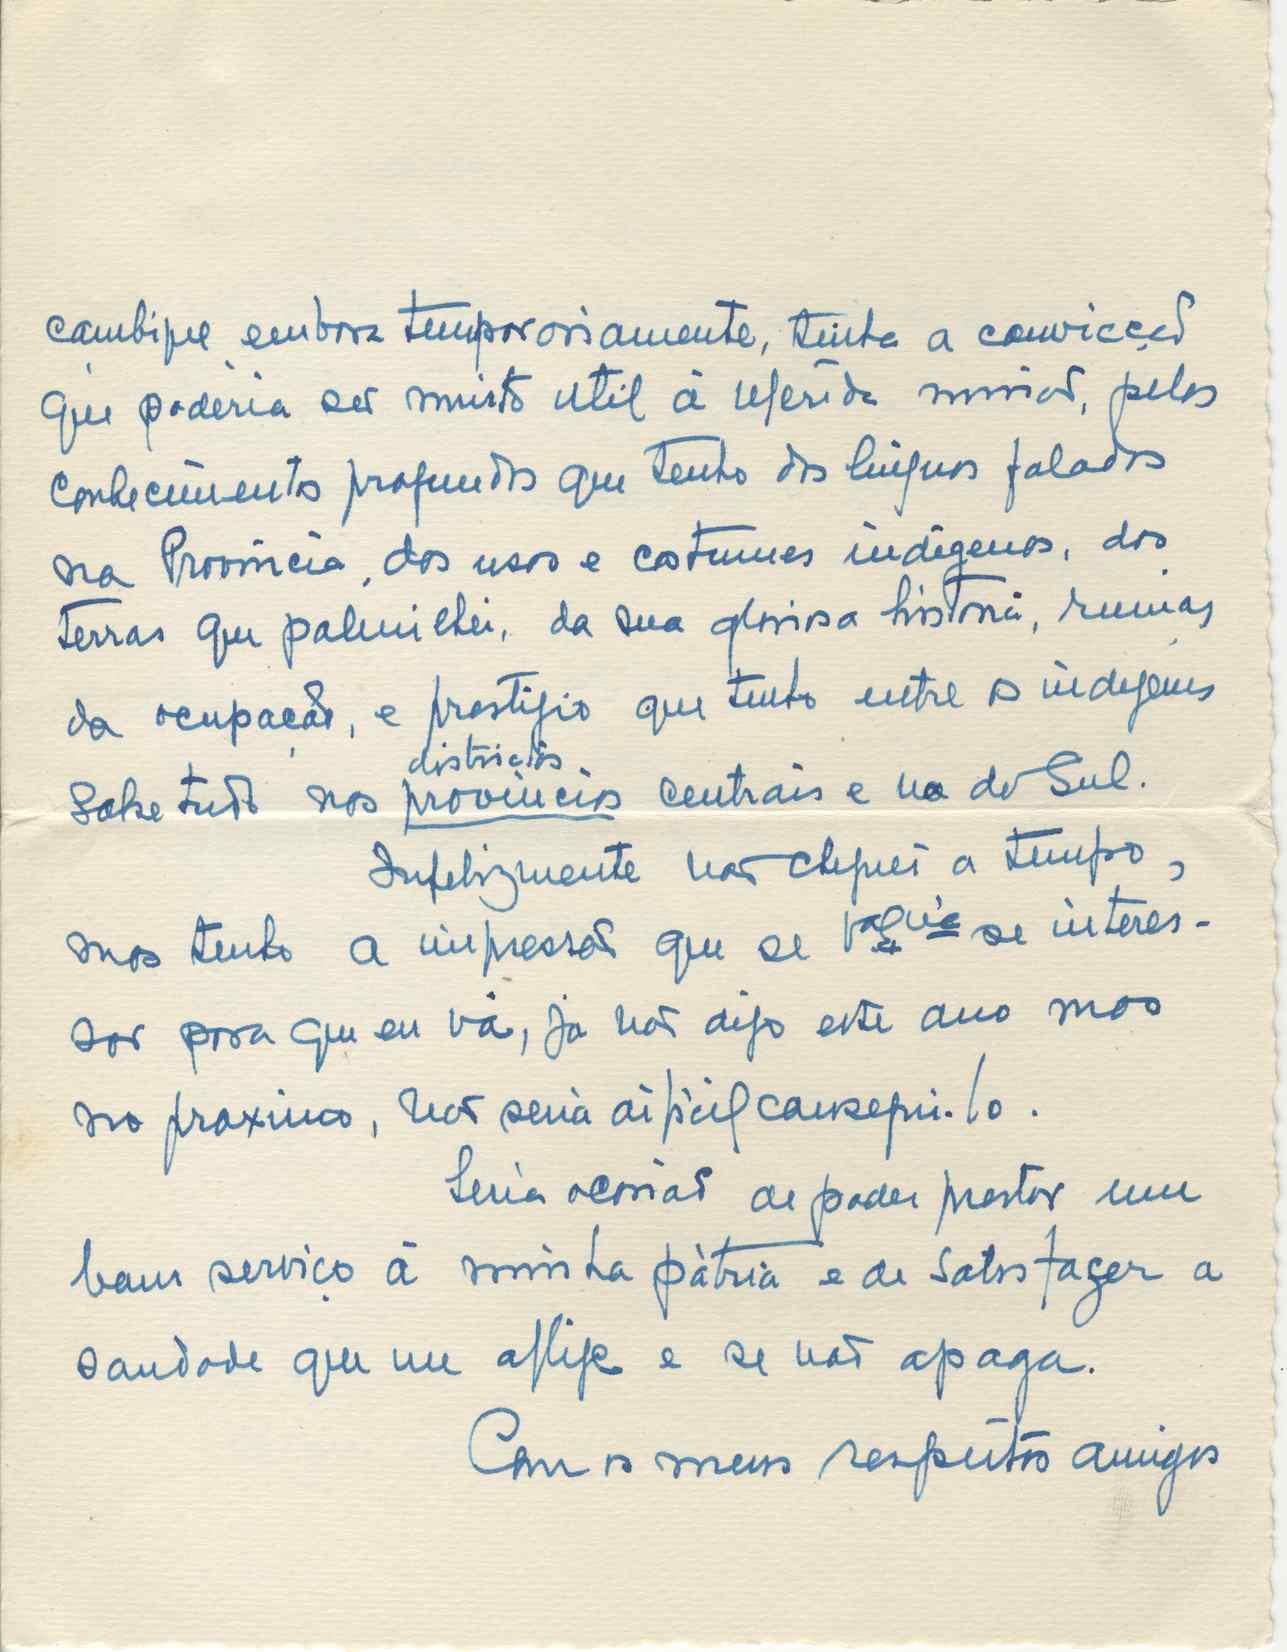 cambique embora temporariamente, tinha a convicção
que poderia ser muito util á referida missão, pelos
conhecimentos profundos que tenho das linguas faladas
na Provincia, dos usos e costumes indigenas, das
terras que palmilhei, da sua gloriosa historia, ruinas
da ocupação, e prestigio que tenho entre os indigenas
districtos
sobretudo nos provincias centrais e na do Sul.
Infelizmente não cheguei a tempo,
mas tenho a impressão que se V. Exia se interes-
sar para que eu vá, já não digo este ano mas
no proximo, não seria dificil consegui-lo.
Seria ocasião de poder prestar um
bom serviço á minha pátria e de satisfazer a
saudade que me aflige e se não apaga.
Com os meus respeitos amigos